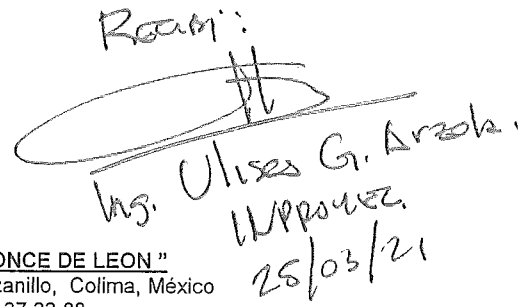 Recibí:
Ing. Ulises G. Arzola.
INPROYEZ.
25/03/21
ONCE DE LEON "
zanillo, Colima, México